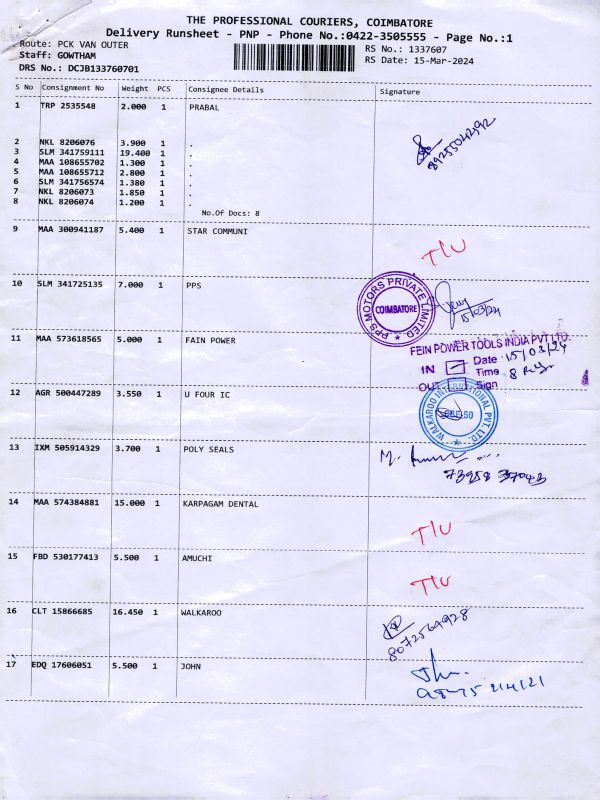 THE PROFESSIONAL COURIERS, COIMBATORE
Delivery Runsheet - PNP - Phone No.:0422-3505555 - Page No.:1
Route: PCK VAN OUTER
RS No.: 1337607
Staff: GOWTHAM
RS Date: 15-Mar-2024
DRS No.: DCJB133760701
S No Consignment No Weight PCS Consignee Details Signature
1 TRP 2535548 2.000 1 PRABAL
89255042592
2 NKL 8206076 3.900 1 .
3 SLM 341759111 19.400 1 .
4 MAA 108655702 1.300 1 .
5 MAA 108655712 2.800 1 .
6 SLM 341756574 1.380 1 .
7 NKL 8206073 1.850 1 .
8 NKL 8206074 1.200 1 .
No.Of Docs: 8
9 MAA 300941187 5.400 1 STAR COMMUNI
T/U
10 SLM 341725135 7.000 1 PPS
PPS MOTORS PRIVATE LIMITED
COIMBATORE
15/03/24
11 MAA 573618565 5.000 1 FAIN POWER
FEIN POWER TOOLS INDIA PVT LTD.
IN Date 15/03/24
Time
OUT Sign
12 AGR 500447289 3.550 1 U FOUR IC
WALKAROO INTERNATIONAL PVT. LTD.
13 IXM 505914329 3.700 1 POLY SEALS
73958 37043
14 MAA 574384881 15.000 1 KARPAGAM DENTAL
T/U
15 FBD 530177413 5.500 1 AMUCHI
T/U
16 CLT 15866685 16.450 1 WALKAROO
8072564928
17 EDQ 17606051 5.500 1 JOHN